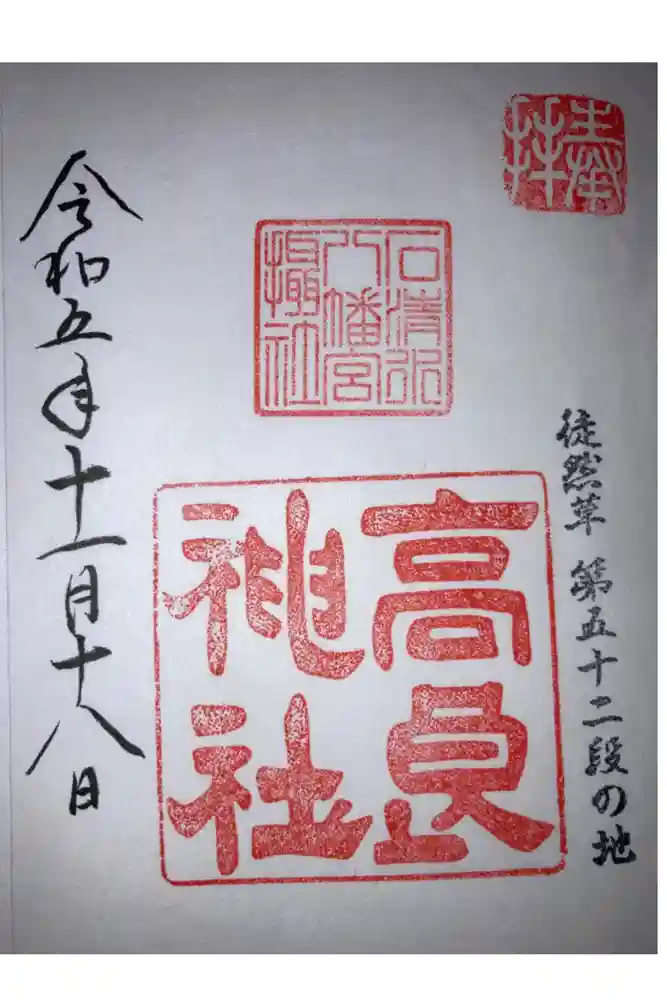 奉拝
徒然草 第五十二段の地
石清水
八幡宮
摂社
高良
神社
令和五年十一月十八日